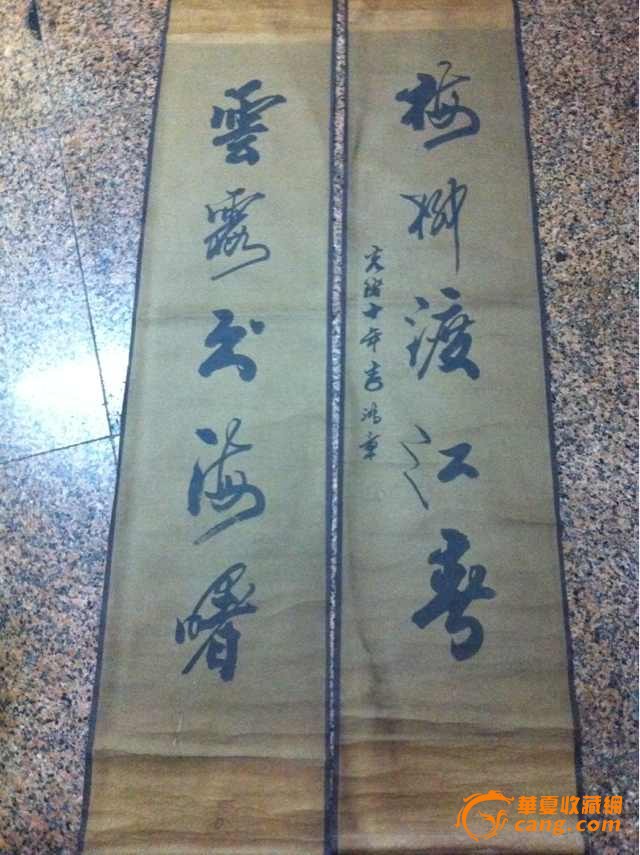 梅柳渡江春
光緒十年書鴻章
雲霞出海曙
華夏收藏網
cang.com